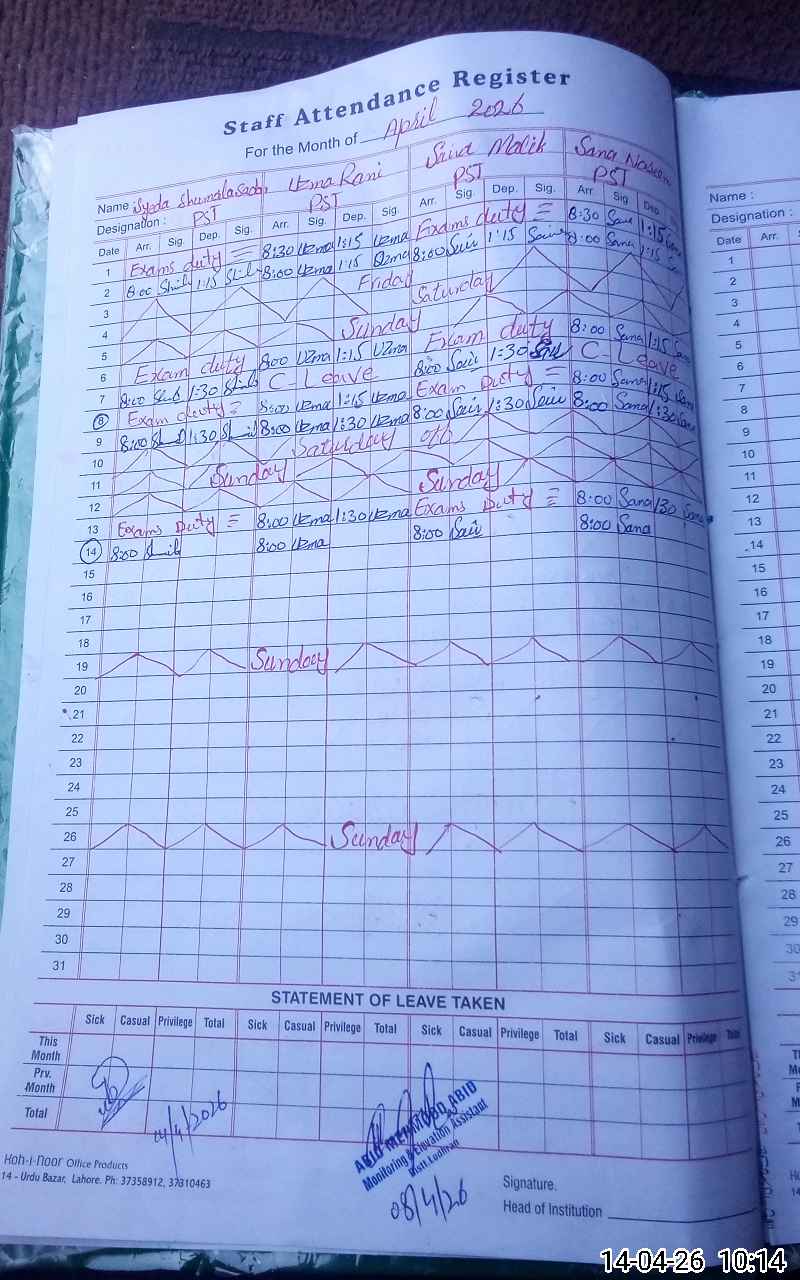 Staff Attendance Register
For the Month of April 2026
Name Syeda Shumaila Sadaf Uzma Rani Saira Malik Sana Naseem Name :
Designation : PST PST PST PST Designation :
Date Arr. Sig. Dep. Sig. Arr. Sig. Dep. Sig. Arr. Sig. Dep. Sig. Arr. Sig Dep. Date Arr.
1 Exams duty = 8:30 Uzma 1:15 Uzma Exams duty = 8:30 Sana 1:15 Sana 1
2 8:00 1:15 8:00 Uzma 1:15 Uzma 8:00 Sair 1:15 Sair 8:00 Sana 1:15 Sana 2
3 Friday 3
4 Saturday 4
5 Sunday 5
6 Exam duty 8:00 Uzma 1:15 Uzma Exam duty 8:00 Sana 1:15 Sana 6
7 8:00 1:30 C-Leave 8:00 Sair 1:30 C-Leave 7
8 Exam duty = 8:00 Uzma 1:15 Uzma Exam duty = 8:00 Sana 1:15 Sana 8
9 8:00 1:30 8:00 Uzma 1:30 Uzma 8:00 Sair 1:30 Sair 8:00 Sana 1:30 Sana 9
10 Saturday off 10
11 11
12 Sunday Sunday 12
13 Exams Duty = 8:00 Uzma 1:30 Uzma Exams Duty = 8:00 Sana 1:30 Sana 13
14 8:00 8:00 Uzma 8:00 Sair 8:00 Sana 14
15 15
16 16
17 17
18 18
19 Sunday 19
20 20
21 21
22 22
23 23
24 24
25 25
26 Sunday 26
27 27
28 28
29 29
30 30
31 31
STATEMENT OF LEAVE TAKEN
Sick Casual Privilege Total Sick Casual Privilege Total Sick Casual Privilege Total Sick Casual Privilege Total
This Month
Prv. Month
Total
14/4/2026
ABID MEHMOOD ABID
Monitoring & Elevation Assistant
Distt Lodhran
08/4/26
Koh-i-noor Office Products
14 - Urdu Bazar, Lahore. Ph: 37358912, 37310463
Signature.
Head of Institution
14-04-26 10:14